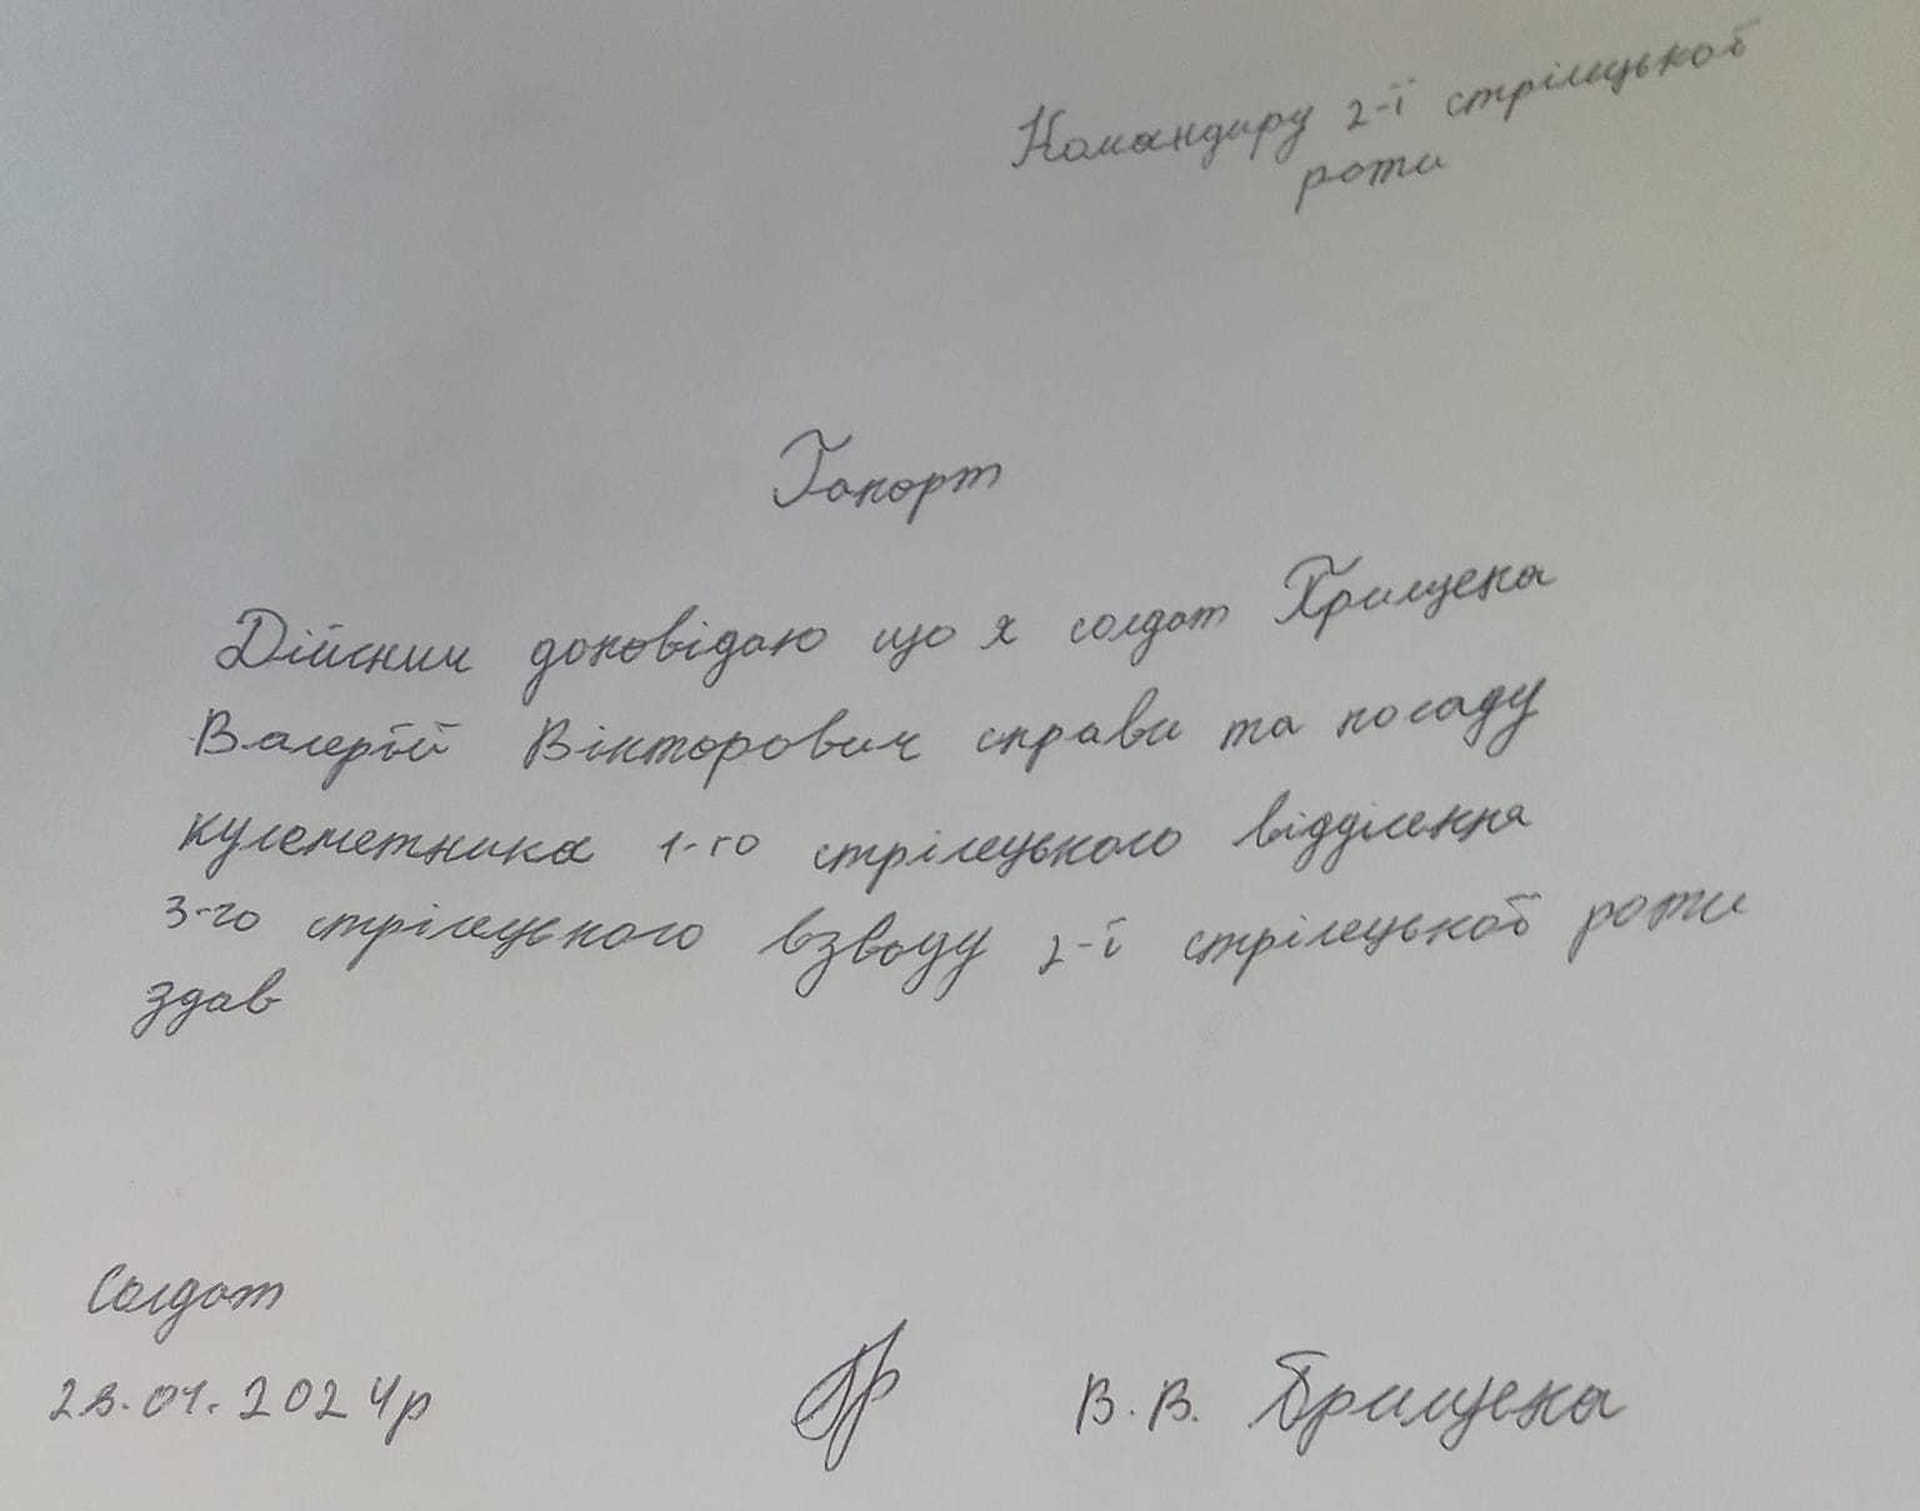 Командиру 2-ї стрілецької
роти
Рапорт
Дійсним доповідаю що я солдат Грищека
Валерій Вікторович справи та посаду
кулеметника 1-го стрілецького відділення
3-го стрілецького взводу 2-ї стрілецької роти
здав
Солдат
23.01.2024р
В.В. Грищека